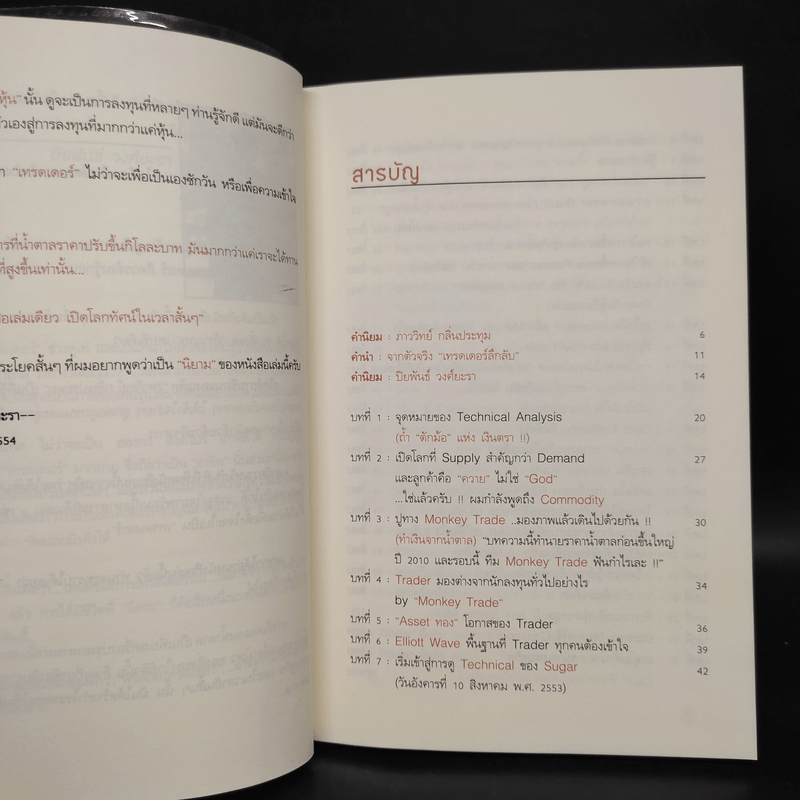 หุ้น" นั้น ดูจะเป็นการลงทุนที่หลายๆ ท่านรู้จักดี แต่มันจะดีกว่า
ัวเองสู่การลงทุนที่มากกว่าแค่หุ้น...
"เทรดเดอร์" ไม่ว่าจะเพื่อเป็นเองซักวัน หรือเพื่อความเข้าใจ
ารที่น้ำตาลราคาปรับขึ้นกิโลละบาท มันมากกว่าแค่เราจะได้ทาน
ที่สูงขึ้นเท่านั้น...
อเล่มเดียว เปิดโลกทัศน์ในเวลาสั้นๆ"
ระโยคสั้นๆ ที่ผมอยากพูดว่าเป็น "นิยาม" ของหนังสือเล่มนี้ครับ
ะรา--
554
สารบัญ
คำนิยม : ภาววิทย์ กลิ่นประทุม 6
คำนำ : จากตัวจริง "เทรดเดอร์ลึกลับ" 11
คำนิยม : ปิยพันธ์ วงศ์ยะรา 14
บทที่ 1 : จุดหมายของ Technical Analysis 20
(ถ้ำ "ตักม้อ" แห่ง เงินตรา !!)
บทที่ 2 : เปิดโลกที่ Supply สำคัญกว่า Demand 27
และลูกค้าคือ "ควาย" ไม่ใช่ "God"
...ใช่แล้วครับ !! ผมกำลังพูดถึง Commodity
บทที่ 3 : ปูทาง Monkey Trade ..มองภาพแล้วเดินไปด้วยกัน !! 30
(ทำเงินจากน้ำตาล) "บทความนี้ทำนายราคาน้ำตาลก่อนขึ้นใหญ่
ปี 2010 และรอบนี้ ทีม Monkey Trade ฟันกำไรเละ !!"
บทที่ 4 : Trader มองต่างจากนักลงทุนทั่วไปอย่างไร 34
by "Monkey Trade"
บทที่ 5 : "Asset ทอง" โอกาสของ Trader 36
บทที่ 6 : Elliott Wave พื้นฐานที่ Trader ทุกคนต้องเข้าใจ 39
บทที่ 7 : เริ่มเข้าสู่การดู Technical ของ Sugar 42
(วันอังคารที่ 10 สิงหาคม พ.ศ. 2553)